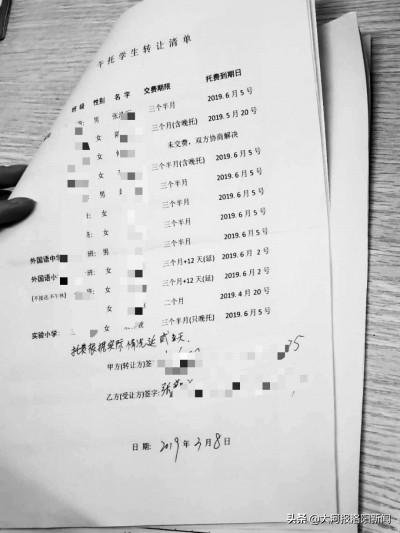 午托学生转让清单
班级 性别 名字 交费期限 托费到期日
男 张 三个半月 2019.6月5号
女 三个月(含晚托) 2019.5月20号
女 未交费，双方协商解决
女 三个月(含晚托) 2019.6月5号
女 三个半月 2019.6月5号
男 三个半月 2019.6月5号
女 三个半月 2019.6月5号
女 三个半月 2019.6月5号
外国语中 班: 女 三个半月 2019.6月5号
外国语小 班: 女 三个月+12天(延) 2019.6月2号
[不接送 不午休] 女 三个月+12天(延) 2019.6月2号
女 二个月 2019.4月20号
实验小学: 女 三个半月(只晚托) 2019.6月5号
托费根据实际情况延或天.
甲方(转让方)签 35
乙方(受让方)签字: 张
日期: 2019年3月8日
头条 @大河报洛阳新闻